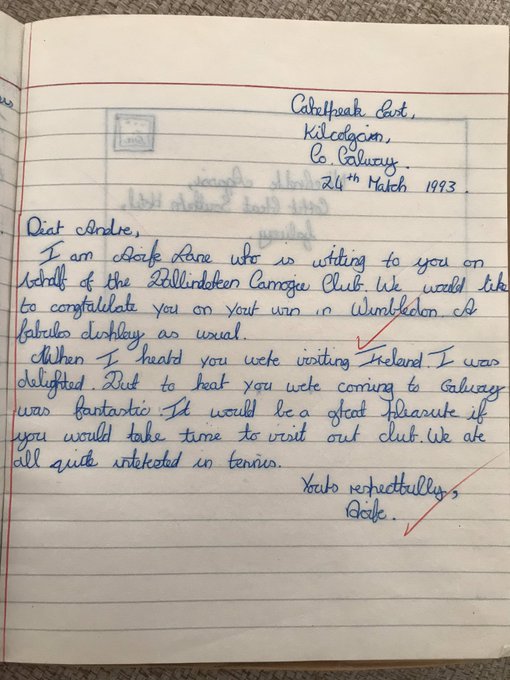 Caherpeak East,
Kilcolgan,
Co. Galway.
24th March 1993.
Dear Andre,
I am Aoife Lane who is writing to you on
behalf of the Ballindereen Camogie Club. We would like
to congratulate you on your win in Wimbledon. A
fabulos display as usual.
When I heard you were visiting Ireland I was
delighted. But to hear you were coming to Galway
was fantastic. It would be a great pleasure if
you would take time to visit our club. We are
all quite interested in tennis.
Yours respectfully,
Aoife.